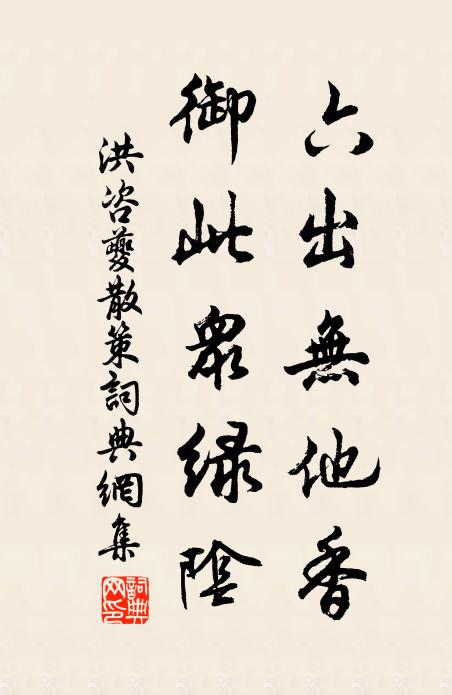 六出無他香
御此衆綠陰
洪咨夔散策詞典網集
詞典網印